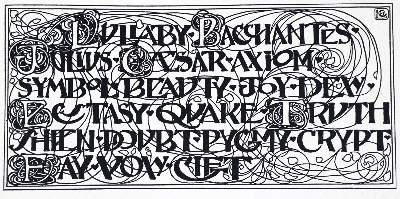 LULLABY · BACCHANTES ·
JULIUS · CÆSAR · AXIOM ·
SYMBOLS BEAUTY · JOY · DEW ·
ECSTASY · QUAKE · TRUTH
SHIEN · DOUBT PYGMY · CRYPT ·
DAY · VOW · GIFT